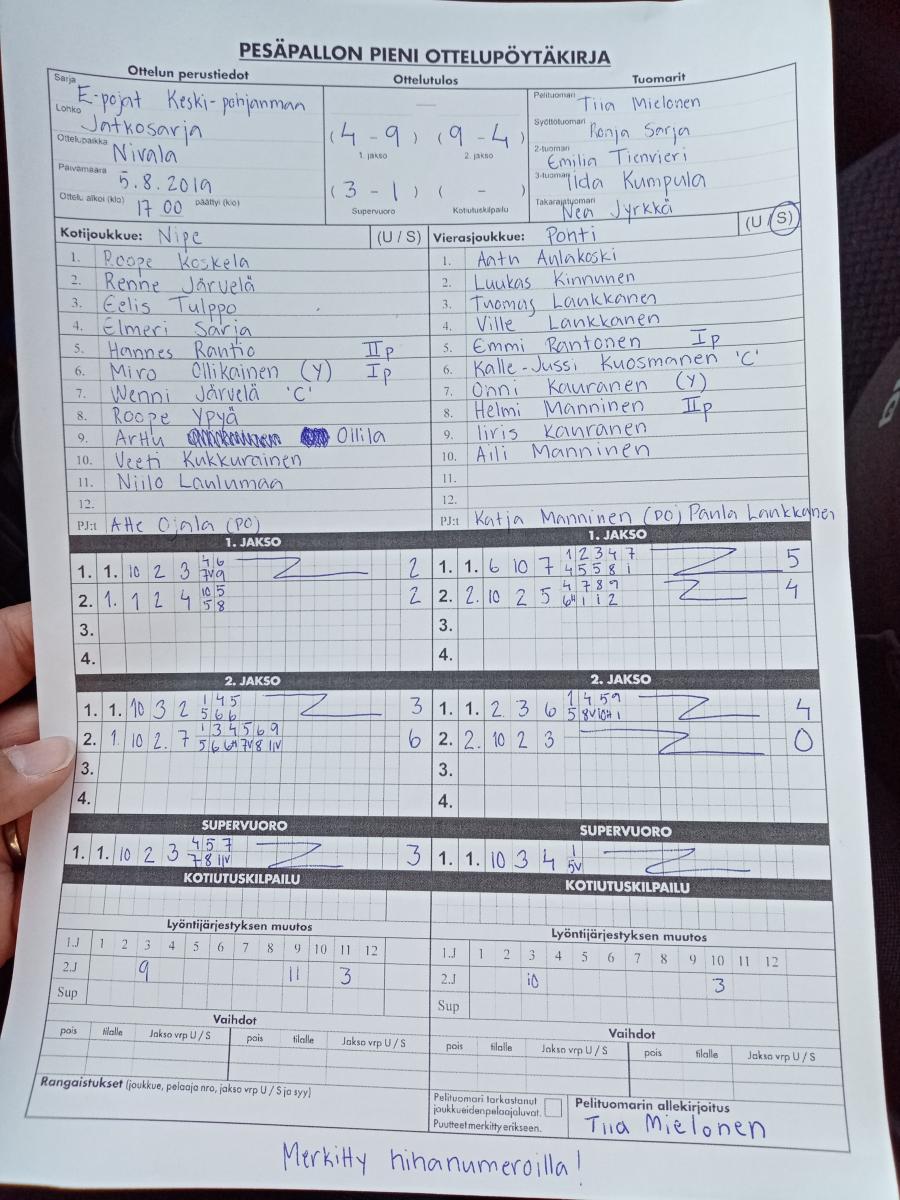 PESÄPALLON PIENI OTTELUPÖYTÄKIRJA
Ottelun perustiedot
Sarja E-pojat Keski-pohjanmaan
Lohko Jatkosarja
Ottelupaikka Nivala
Päivämäärä 5.8.2019
Ottelu alkoi (klo) 17 00 päättyi (klo)
Ottelutulos
(4 - 9) (9 - 4)
1. jakso 2. jakso
(3 - 1) ( - )
Supervuoro Kotiutuskilpailu
Tuomarit
Pelituomari Tiia Mielonen
Syöttötuomari Ronja Sarja
2-tuomari Emilia Tienvieri
3-tuomari Iida Kumpula
Takarajatuomari Nea Jyrkkä
Kotijoukkue: Nipe (U / S)
1. Roope Koskela
2. Renne Järvelä
3. Eelis Tulppo
4. Elmeri Sarja
5. Hannes Rantio IIp
6. Miro Ollikainen (Y) Ip
7. Wenni Järvelä 'C'
8. Roope Ypyä
9. Arttu Ollila
10. Veeti Kukkurainen
11. Niilo Laulumaa
12.
PJ:t Atte Ojala (PO)
Vierasjoukkue: Ponti (U / S)
1. Aatu Aulakoski
2. Luukas Kinnunen
3. Tuomas Laukkanen
4. Ville Laukkanen
5. Emmi Rantonen Ip
6. Kalle-Jussi Kuosmanen 'C'
7. Onni Kauranen (Y)
8. Helmi Manninen IIp
9. Iiris Kauranen
10. Aili Manninen
11.
12.
PJ:t Katja Manninen (PO) Paula Laukkanen
1. JAKSO
1. 1. 10 2 3 4 6 2
7V 9
2. 1. 1 2 4 10 5 2
5 8
3.
4.
1. JAKSO
1. 1. 6 10 7 1 2 3 4 7 5
4 5 5 8 1
2. 2. 10 2 5 4 7 8 9 4
6H 1 1 2
3.
4.
2. JAKSO
1. 1. 10 3 2 1 4 5 3
5 6 6
2. 1. 10 2. 7 1 3 4 5 6 9 6
5 6 6H 7V 8 11V
3.
4.
2. JAKSO
1. 1. 2 3 6 1 4 5 9 4
5 8V 10H 1
2. 2. 10 2 3 0
3.
4.
SUPERVUORO
1. 1. 10 2 3 4 5 7 3
7 8 11V
SUPERVUORO
1. 1. 10 3 4 1
5V
KOTIUTUSKILPAILU
Lyöntijärjestyksen muutos
1.J 1 2 3 4 5 6 7 8 9 10 11 12
2.J 9 11 3
Sup
KOTIUTUSKILPAILU
Lyöntijärjestyksen muutos
1.J 1 2 3 4 5 6 7 8 9 10 11 12
2.J 10 3
Sup
Vaihdot
pois tilalle Jakso vrp U / S pois tilalle Jakso vrp U / S
Vaihdot
pois tilalle Jakso vrp U / S pois tilalle Jakso vrp U / S
Rangaistukset (joukkue, pelaaja nro, jakso vrp U / S ja syy)
Pelituomari tarkastanut
joukkueiden pelaajaluvat.
Puutteet merkitty erikseen.
Pelituomarin allekirjoitus
Tiia Mielonen
Merkitty hihanumeroilla!